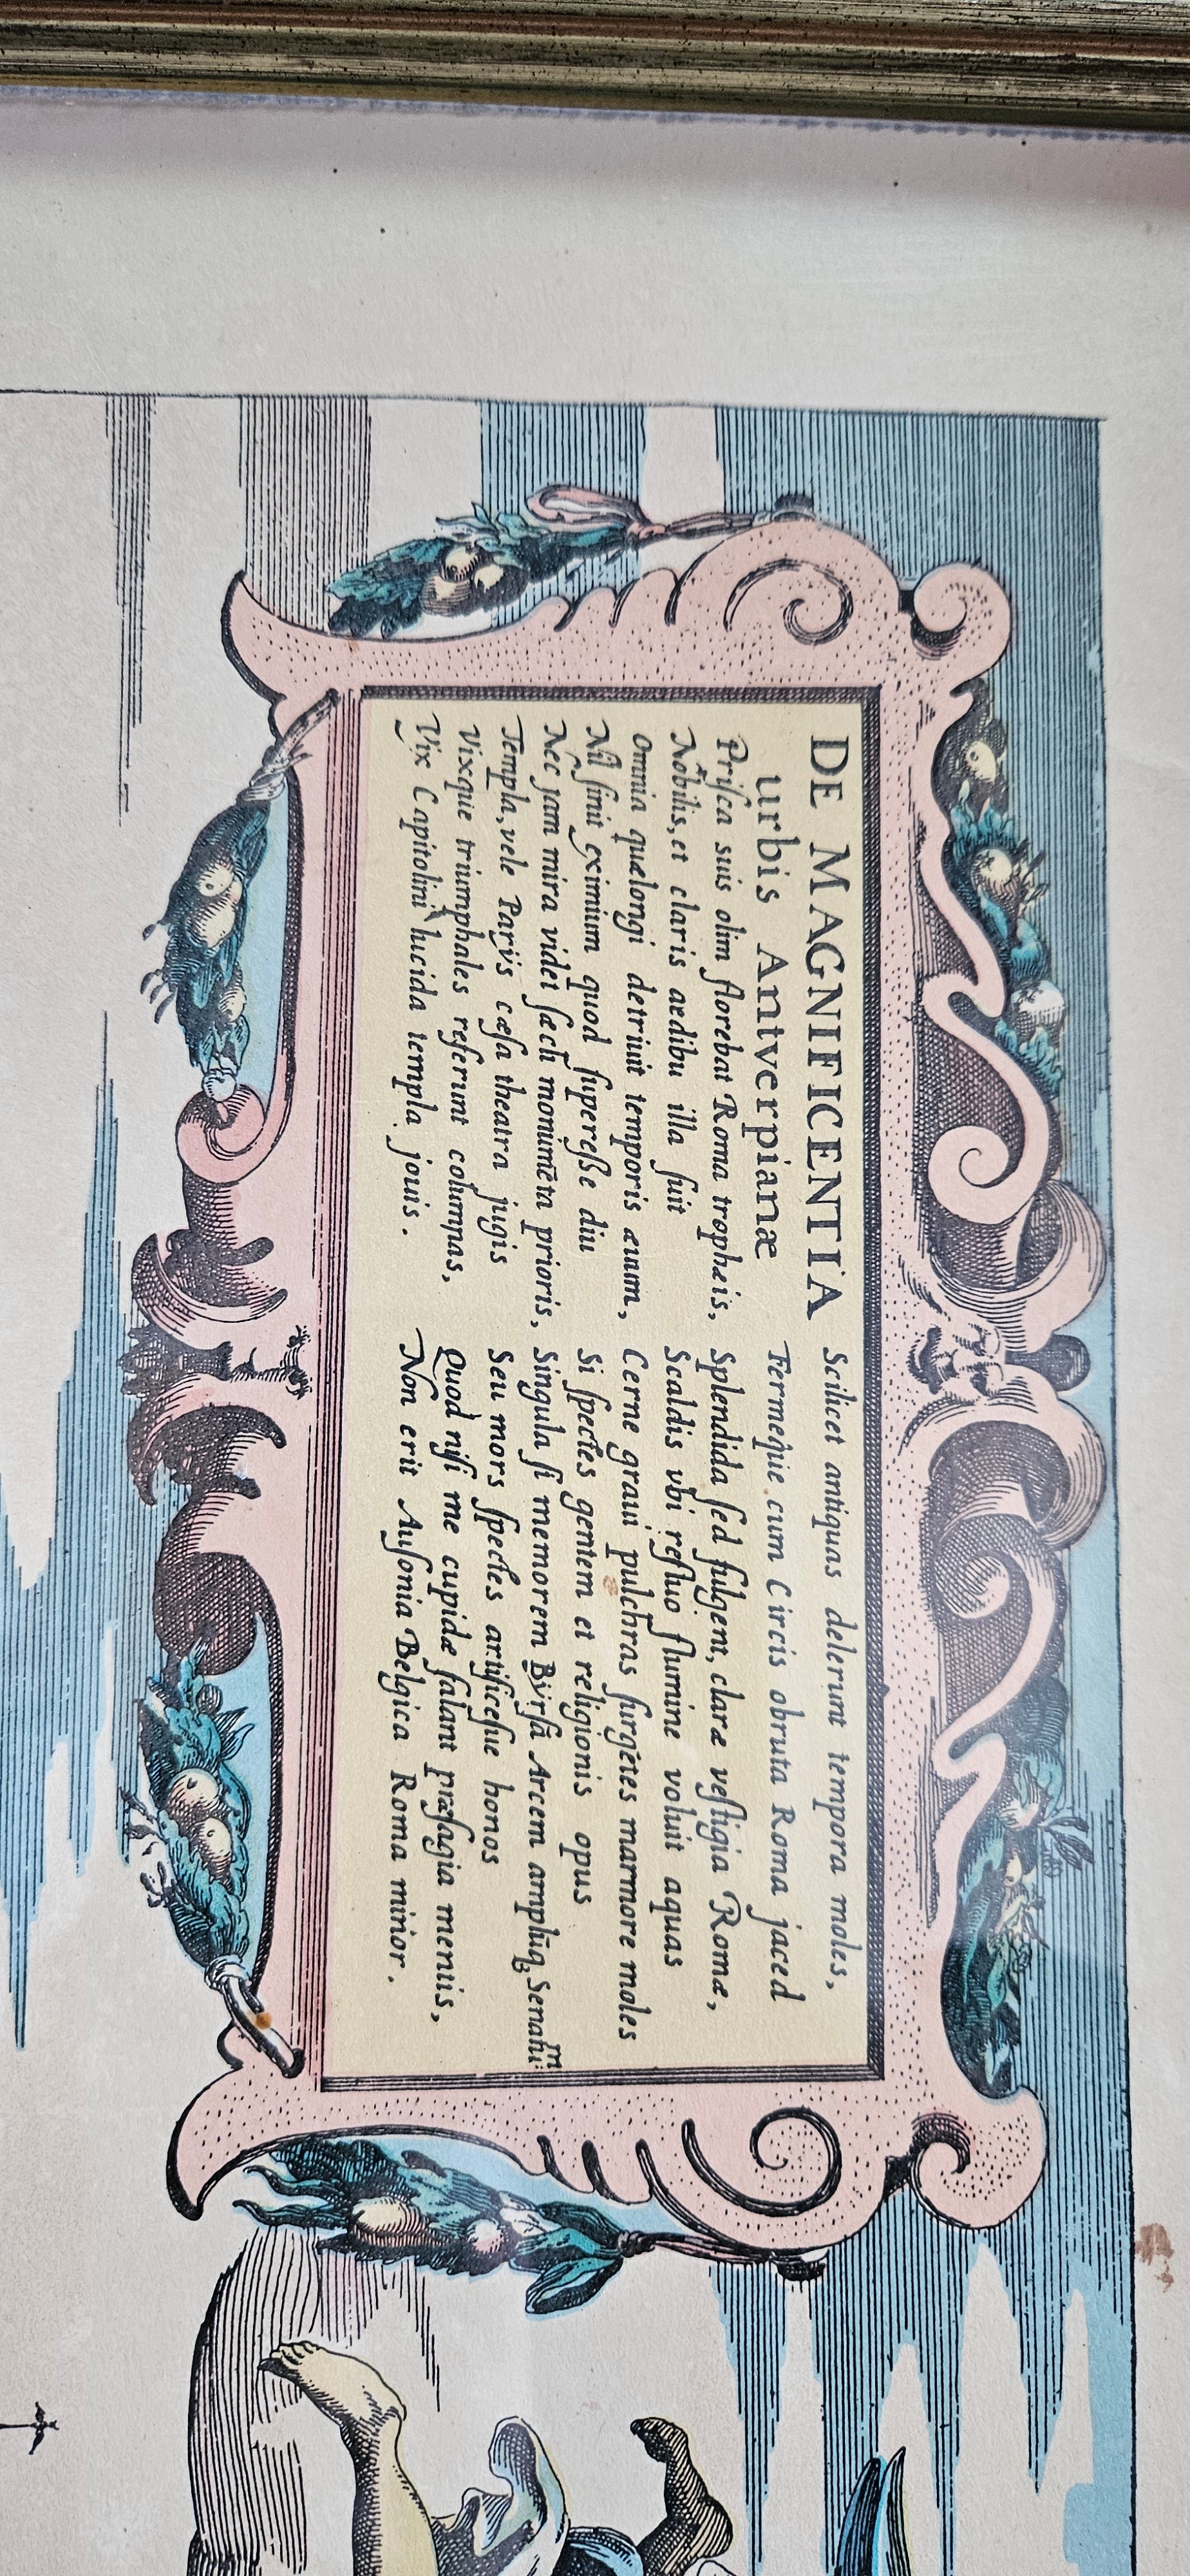 DE MAGNIFICENTIA
urbis Antverpianæ
Prisca suis olim florebat Roma tropheis,
Nobilis, et claris aedibu illa fuit
Omnia quælongi detriuit temporis æuum,
Nil sinit eximium quod superesse diu
Nec jam mira videt sæcli monumēta prioris,
Templa, vele Parijs cæsa theatra jugis
Vixque triumphales referunt columpas,
Vix Capitolini lucida templa jouis.
Scilicet antiquas delerunt tempora moles,
Fermeque cum Circis obruta Roma jaced
Splendida sed fulgent, claræ vestigia Romæ,
Scaldis vbi refluo flumine voluit aquas
Cerne graui pulchras surgētes marmore moles
Si spectes gentem et religionis opus
Singula si memorem Byrsā Arcem amplūq₃ Senatū
Seu mors spectes artificesue honos
Quod nisi me cupidæ falant præsagia mentis,
Non erit Ausonia Belgica Roma minor.